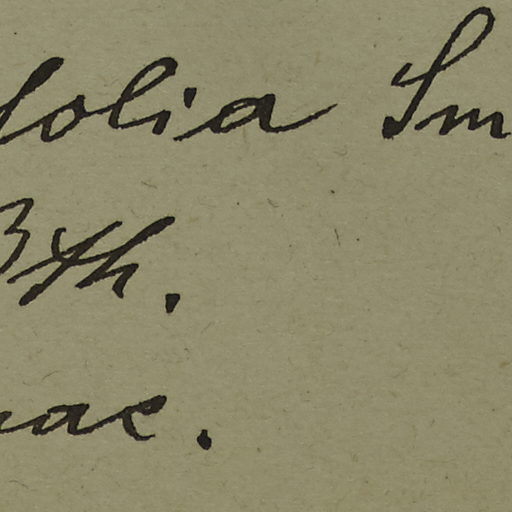 folia Sm
Bth.
nae.